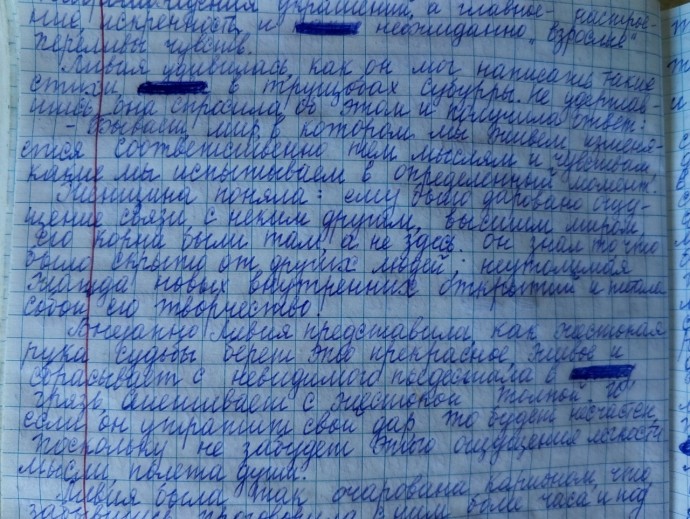 украшений, а главное - настрое-
ние искренность и неожиданно "взрослые"
переливы чувств.
Ливия удивилась, как он мог написать такие
стихи в трущобах Субурры. Не удержав-
шись, она спросила об этом и получила ответ:
- Бывает, мир в котором мы живем, изменя-
ется соответственно тем мыслям и чувствам,
какие мы испытываем в определенный момент.
Женщина поняла: ему было даровано ощу-
щение связи с неким другим, высшим миром.
Его корни были там, а не здесь, он знал то что
было скрыто от других людей; неутолимая
жажда новых внутренних открытий и питала
собой его творчество!
Внезапно Ливия представила, как жестокая
рука судьбы берет это прекрасное, живое и
сбрасывает с невидимого пьедестала в
грязь, смешивает с жестокой толпой. И
если он утратит свой дар то будет несчастен,
поскольку не забудет этого ощущения легкости
мысли, полета души.
Ливия была так очарована Карионом, что,
забывшись, проговорила с ним более часа и под